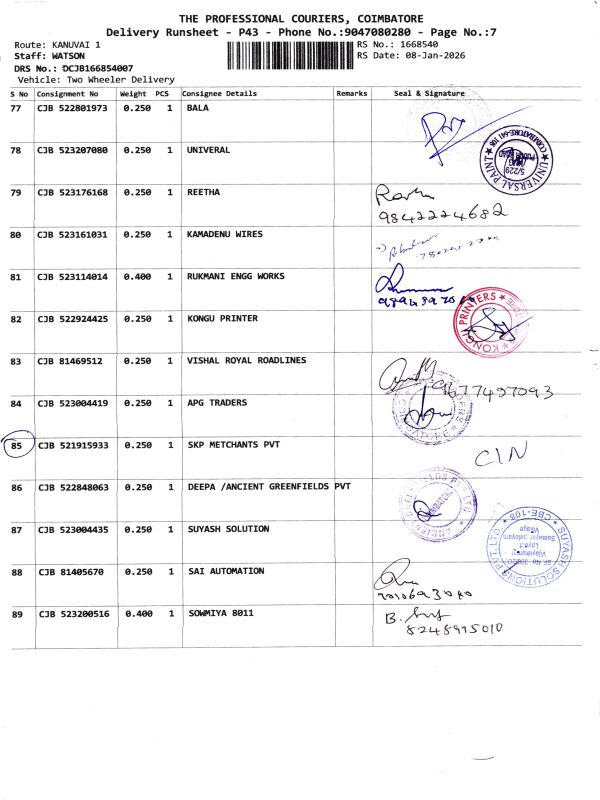 THE PROFESSIONAL COURIERS, COIMBATORE
Delivery Runsheet - P43 - Phone No.:9047080280 - Page No.:7
Route: KANUVAI 1
RS No.: 1668540
Staff: WATSON
RS Date: 08-Jan-2026
DRS No.: DCJB166854007
Vehicle: Two Wheeler Delivery
S No Consignment No Weight PCS Consignee Details Remarks Seal & Signature
77 CJB 522801973 0.250 1 BALA
78 CJB 523207080 0.250 1 UNIVERAL
UNIVERSAL PAINT
COIMBATORE-641 108
5/229
79 CJB 523176168 0.250 1 REETHA
9842224682
80 CJB 523161031 0.250 1 KAMADENU WIRES
81 CJB 523114014 0.400 1 RUKMANI ENGG WORKS
82 CJB 522924425 0.250 1 KONGU PRINTER
KONGU PRINTERS
83 CJB 81469512 0.250 1 VISHAL ROYAL ROADLINES
9677497093
84 CJB 523004419 0.250 1 APG TRADERS
COIMBATORE
85 CJB 521915933 0.250 1 SKP METCHANTS PVT
C/N
86 CJB 522848063 0.250 1 DEEPA /ANCIENT GREENFIELDS PVT
87 CJB 523004435 0.250 1 SUYASH SOLUTION
SUYASH SOLUTIONS PVT.LTD.
CBE-108
88 CJB 81405670 0.250 1 SAI AUTOMATION
89 CJB 523200516 0.400 1 SOWMIYA 8011
8248975010